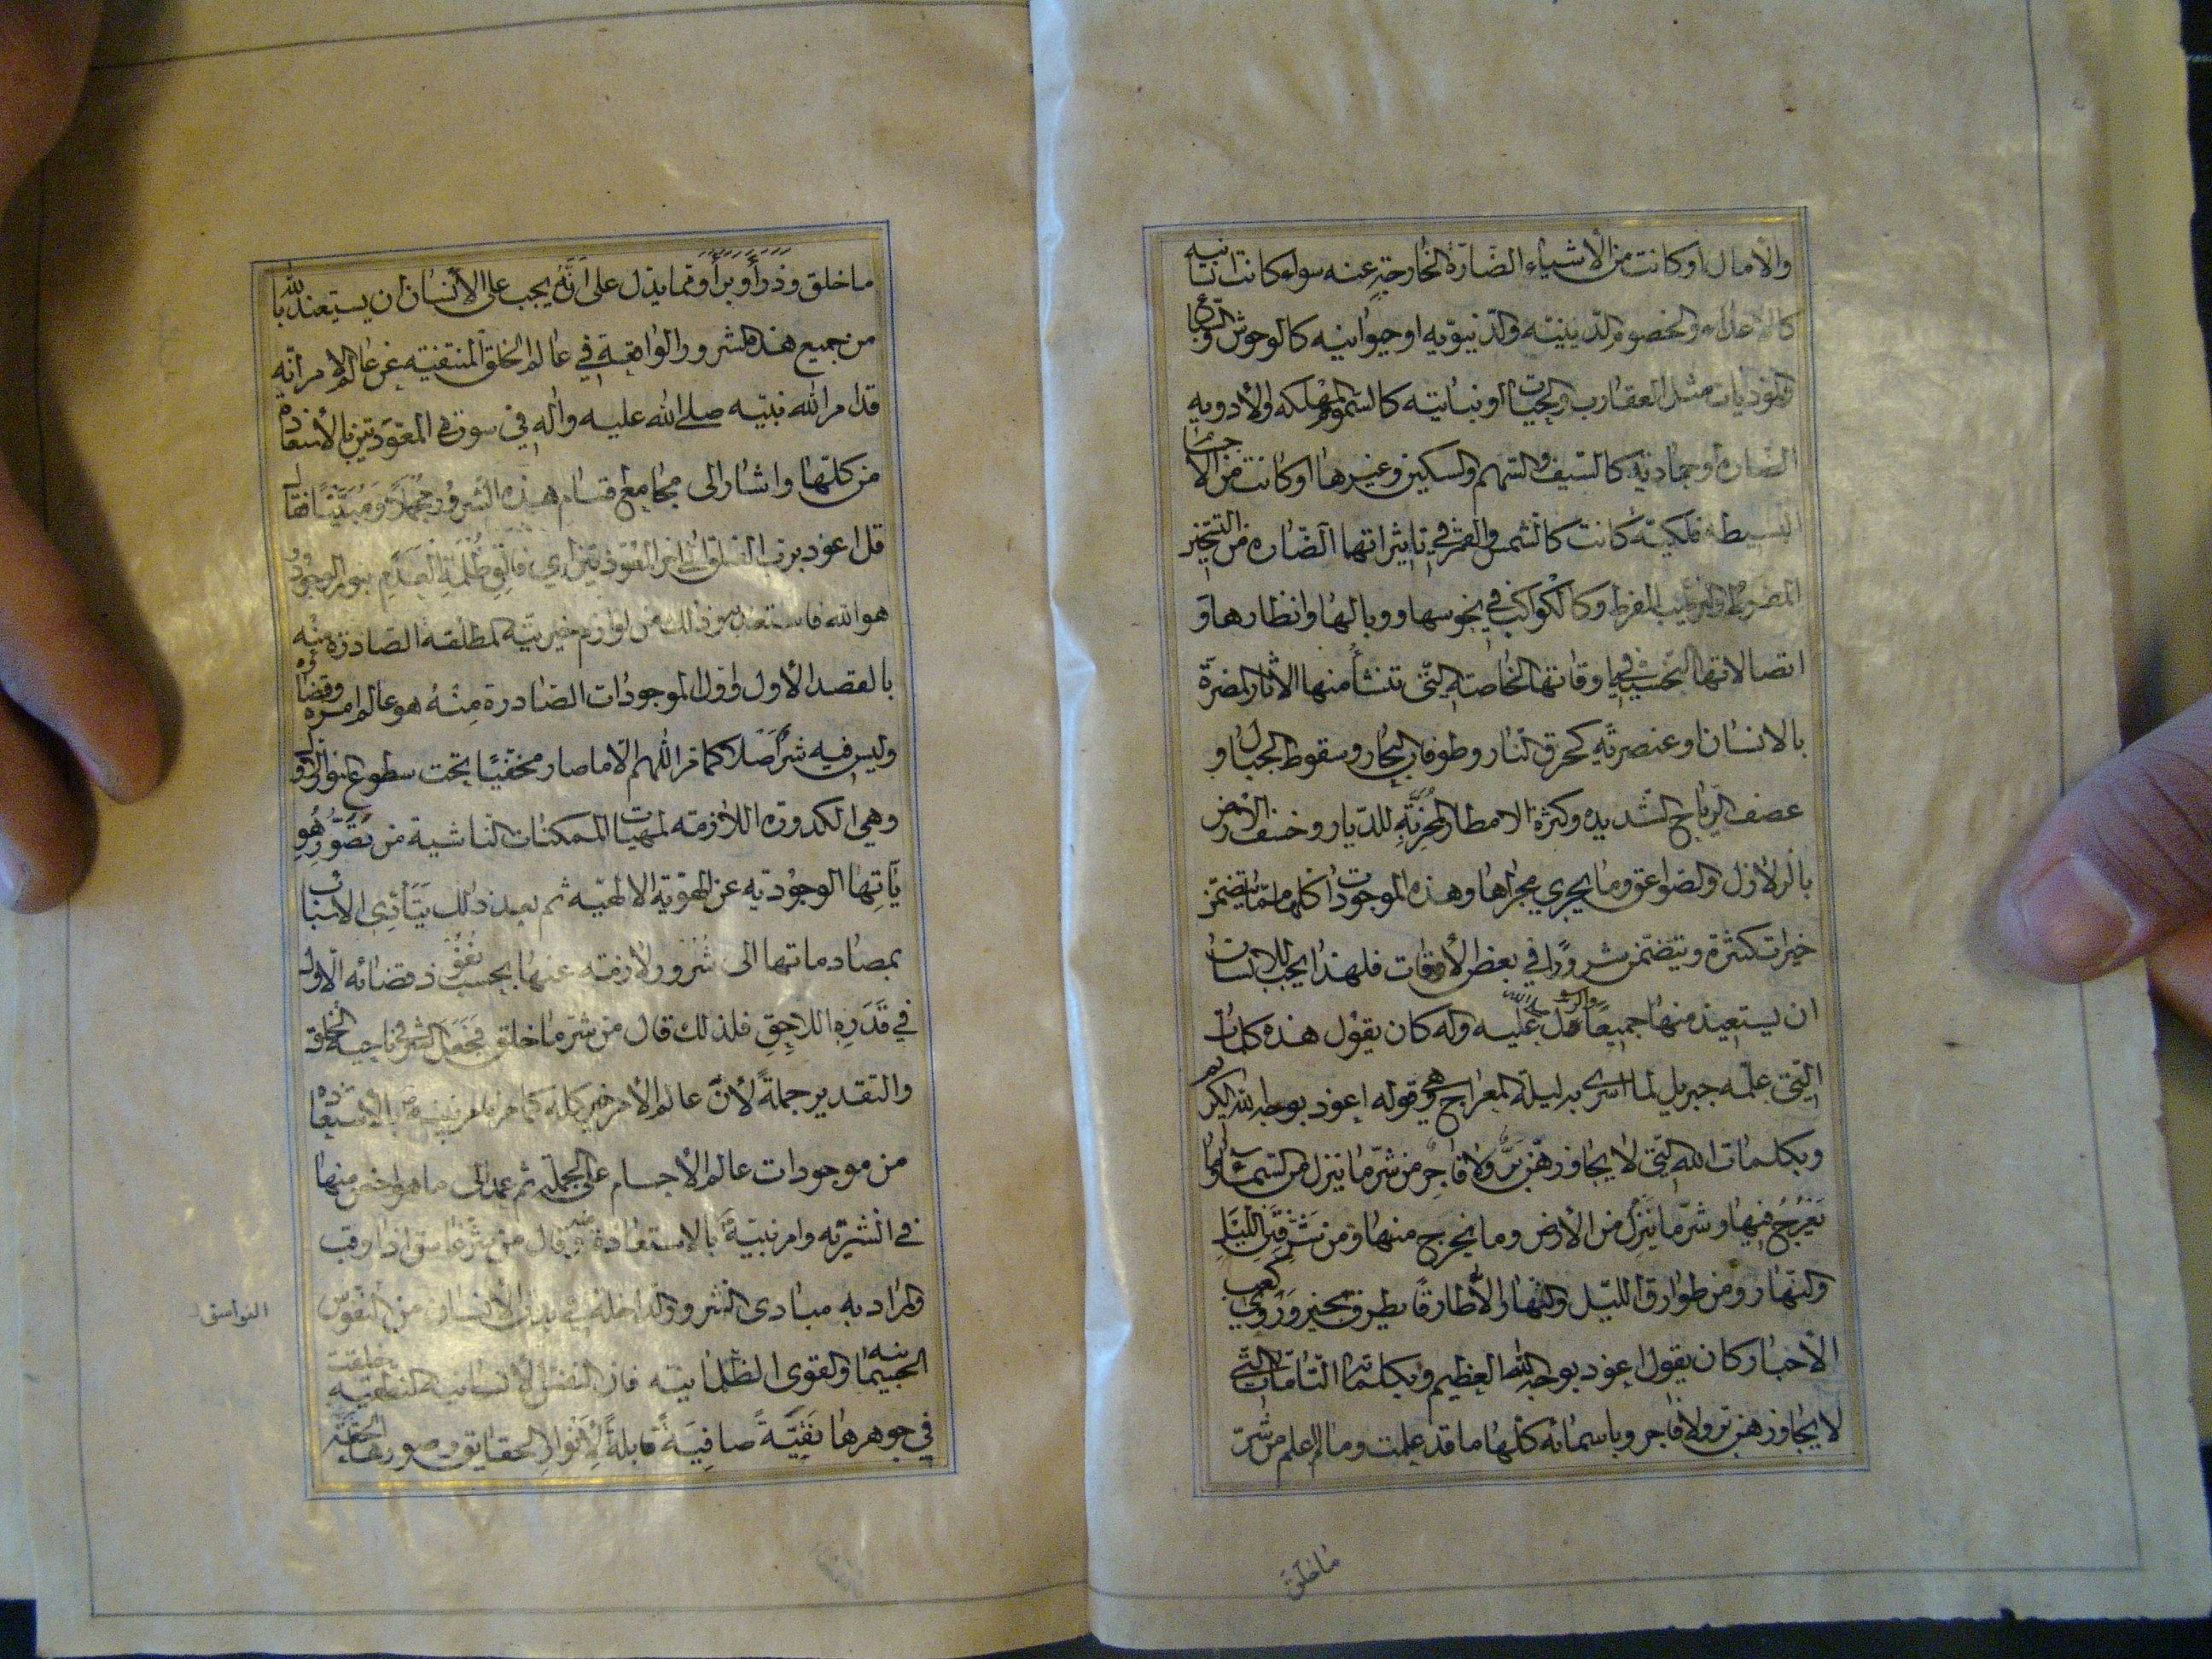 والآمال او كانت من الأشياء الضّارّة الخارجة عنه سواء كانت انسانيه
كالاعداء والخصوم الدّينيّته والدّنيويّه او حيوانيه كالوحوش والسباع
المؤذيات مثل العقارب والحيات او نباتيته كالسّموم المهلكه والأدويه
الضاره او جماديّه كالسّيف والسّهم والسكين وغيرها او كانت من الاجرام
البسيطه فلكيّة كانت كالشمس والقمر في تأثيراتها الضّاره من التسخين
المفرط والترطيب المفرط وكالكواكب في نحوسها ووبالها وانظارها و
اتصالاتها النحسية في اوقاتها الخاصّته الّتى تنشأ منها الآثار المضرّة
بالانسان او عنصريّه كحرق النّار وطوفان البحار وسقوط الجبال و
عصف الرّياح الشّديده وكثرة الامطار المخربة للدّيار وخسف الأرض
بالزلازل والصّواعق وما يجري مجراها وهذه الموجودات كلها ممّا يتضمّن
خيرات كثرة ويتضمّن شرورًا في بعض الأوقات فلهذا يجب للانسان
ان يستعيذ منها جميعًا والرسول صلى الله عليه وآله كان يقول هذه كلمات
الّتى علّمه جبريل لمّا اسرى به ليلة المعراج وهي قوله اعوذ بوجه الله الكريم
وبكلمات الله الّتى لا يجاوزهنّ برّ ولا فاجر من شرّ ما ينزل من السّماء وما
يعرج فيها وشرّ ما ينزل من الأرض وما يخرج منها ومن شرّ فتن اللّيل
والنّهار ومن طوارق الليّل والنّهار الّا طارقًا يطرق بخير وروى كعب
الأحبار وكان يقول اعوذ بوجه الله العظيم وبكلمات التّامّات الّتى
لا يجاوزهنّ برّ ولا فاجر وباسمائه كلّها ما قد علمت وما لم اعلم من شرّ
ما خلق
ما خلق وذرأ وبرأ وممّا يدل على انّه يجب على الأنسان ان يستعيذ بالله
من جميع هذه الشرور الواقعة في عالم الخلق المنتفيته عن عالم الامر انّه
قد امر الله نبيّه صلى الله عليه وآله في سورة المعوّذتين بالأستعاذة
من كلّها واشار الى مجامع اقسام هذه الشرور مجملًا ومبيّنًا فقال
قل اعوذ بربّ الفلق الى اخر المعوّذتين اي فالق ظلمة العدم بنور الوجود و
هو الله فاستعذ به وذلك من لوازم خيريّته المطلقة الصّادرة منه
بالقصد الأول واوّل الموجودات الصّادرة منه هو عالم امره وقضاؤه
وليس فيه شرّ اصلا كما مرّ اللهم الّا ما صار مخفيًا تحت سطوع النور الأول
وهي الكدورة اللّازمته لمهيّات الممكنات الناشية من تصوّر هو
يّاتها الوجوديّه عن الهويّة الالهيّه ثم بعد ذلك يتأدّى الاسباب
بمصادماتها الى شرور لازمته عنها بحسب نفوذ قضائه الاول
في قدره اللاحق فلذلك قال من شرّ ما خلق فجعل الشر في ناحية الخلق
والتقدير جملةً لأنّ عالم الأمر خير كله كما مرّ بالأستعاذة
من موجودات عالم الأجسام على الجملة ثم عمد الى ما هو اخص منها
في الشريّه وامر نبيّه بالاستعاذة منه وقال من شرّ غاسق اذا وقب
والمراد به مبادى الشرور الداخلة في بدن الأنسان من النفوس
الفواسق
الجسمانيه والقوى الظلمانيّه فان النفس الأنسانيه خلقت
في جوهرها نقيّةً صافيةً قابلةً لأنوار الحقايق وصورها الحقّة